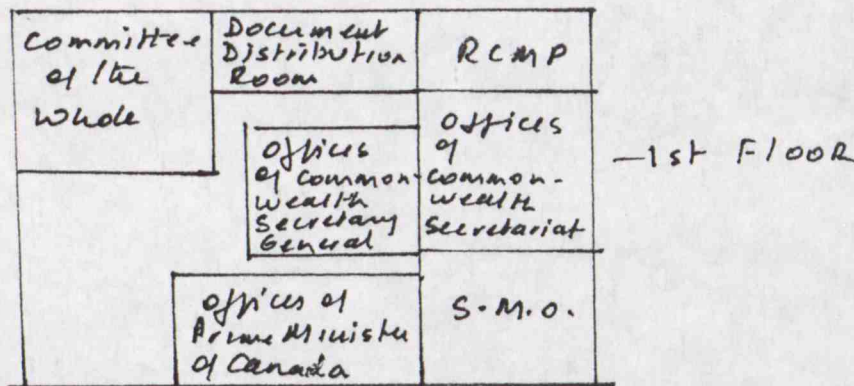 Committee
of the
Whole
Document
Distribution
Room
RCMP
Offices
of Common-
wealth
Secretary
General
Offices
of
Common-
wealth
Secretariat
—1st FlOOR
Offices of
Prime Minister
of Canada
S.M.O.